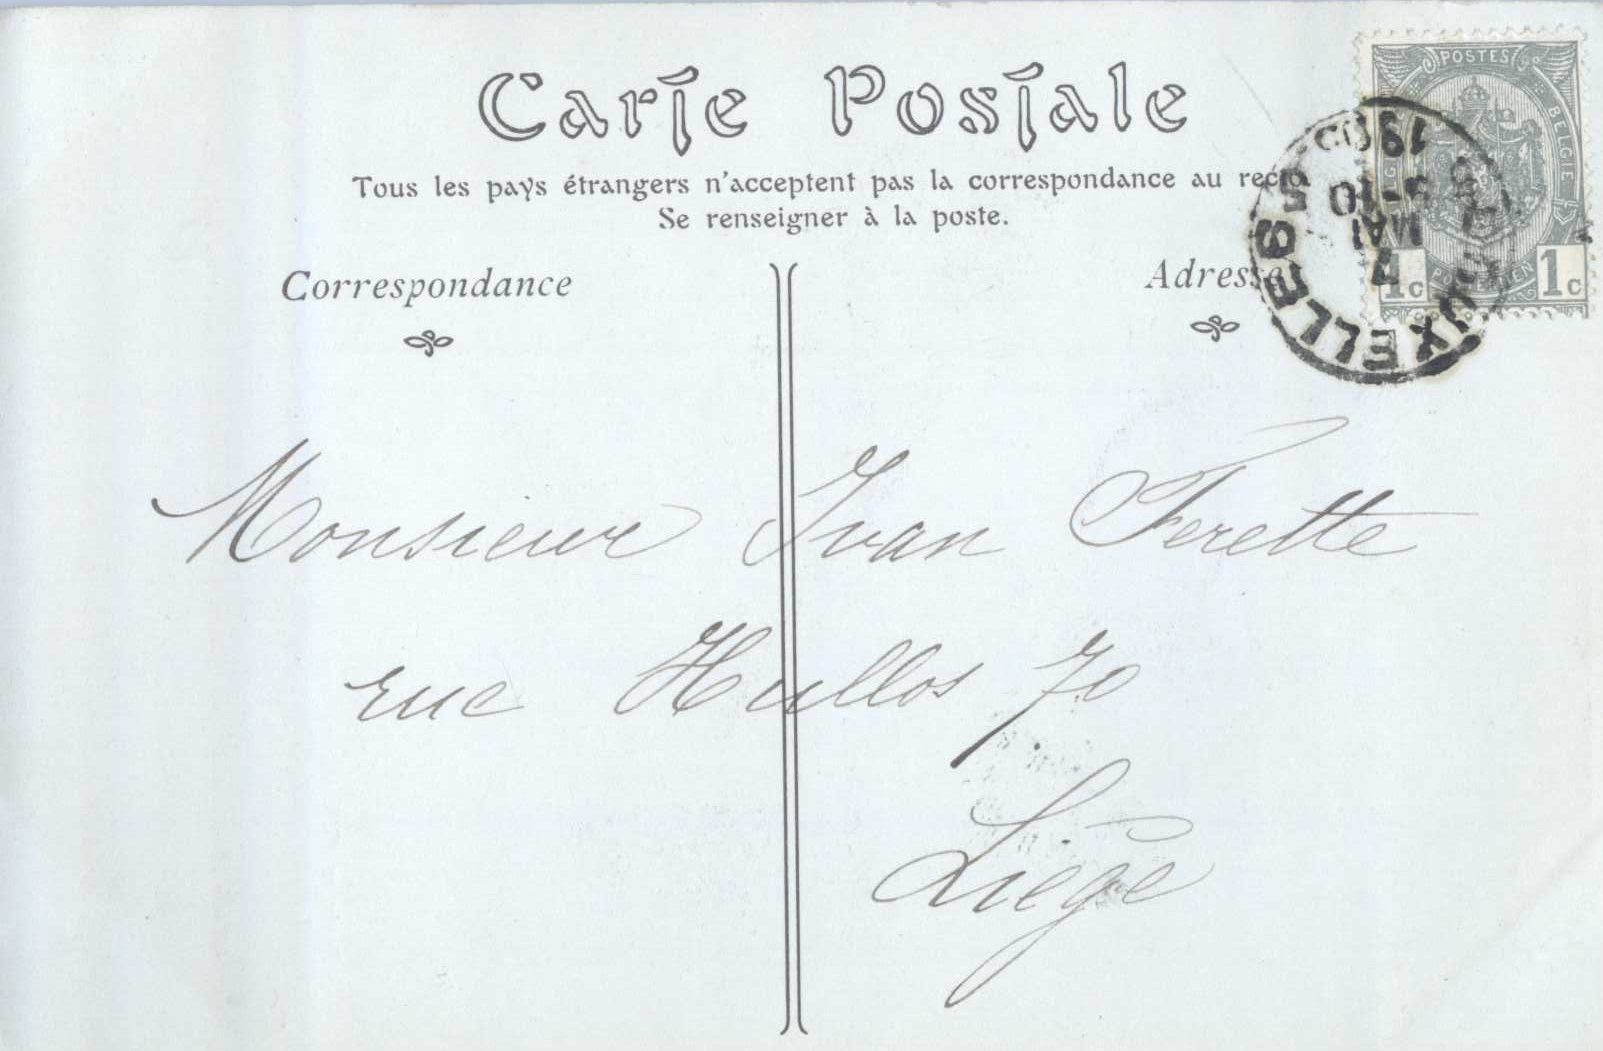 Carte Postale
Tous les pays étrangers n'acceptent pas la correspondance au recto
Se renseigner à la poste.
Correspondance
Adresse
POSTES
BELGIE
1c
1c
BRUXELLES 5
7
MAI
9-10
19
Monsieur Ivan Ferette
rue Hullos 70
Liège